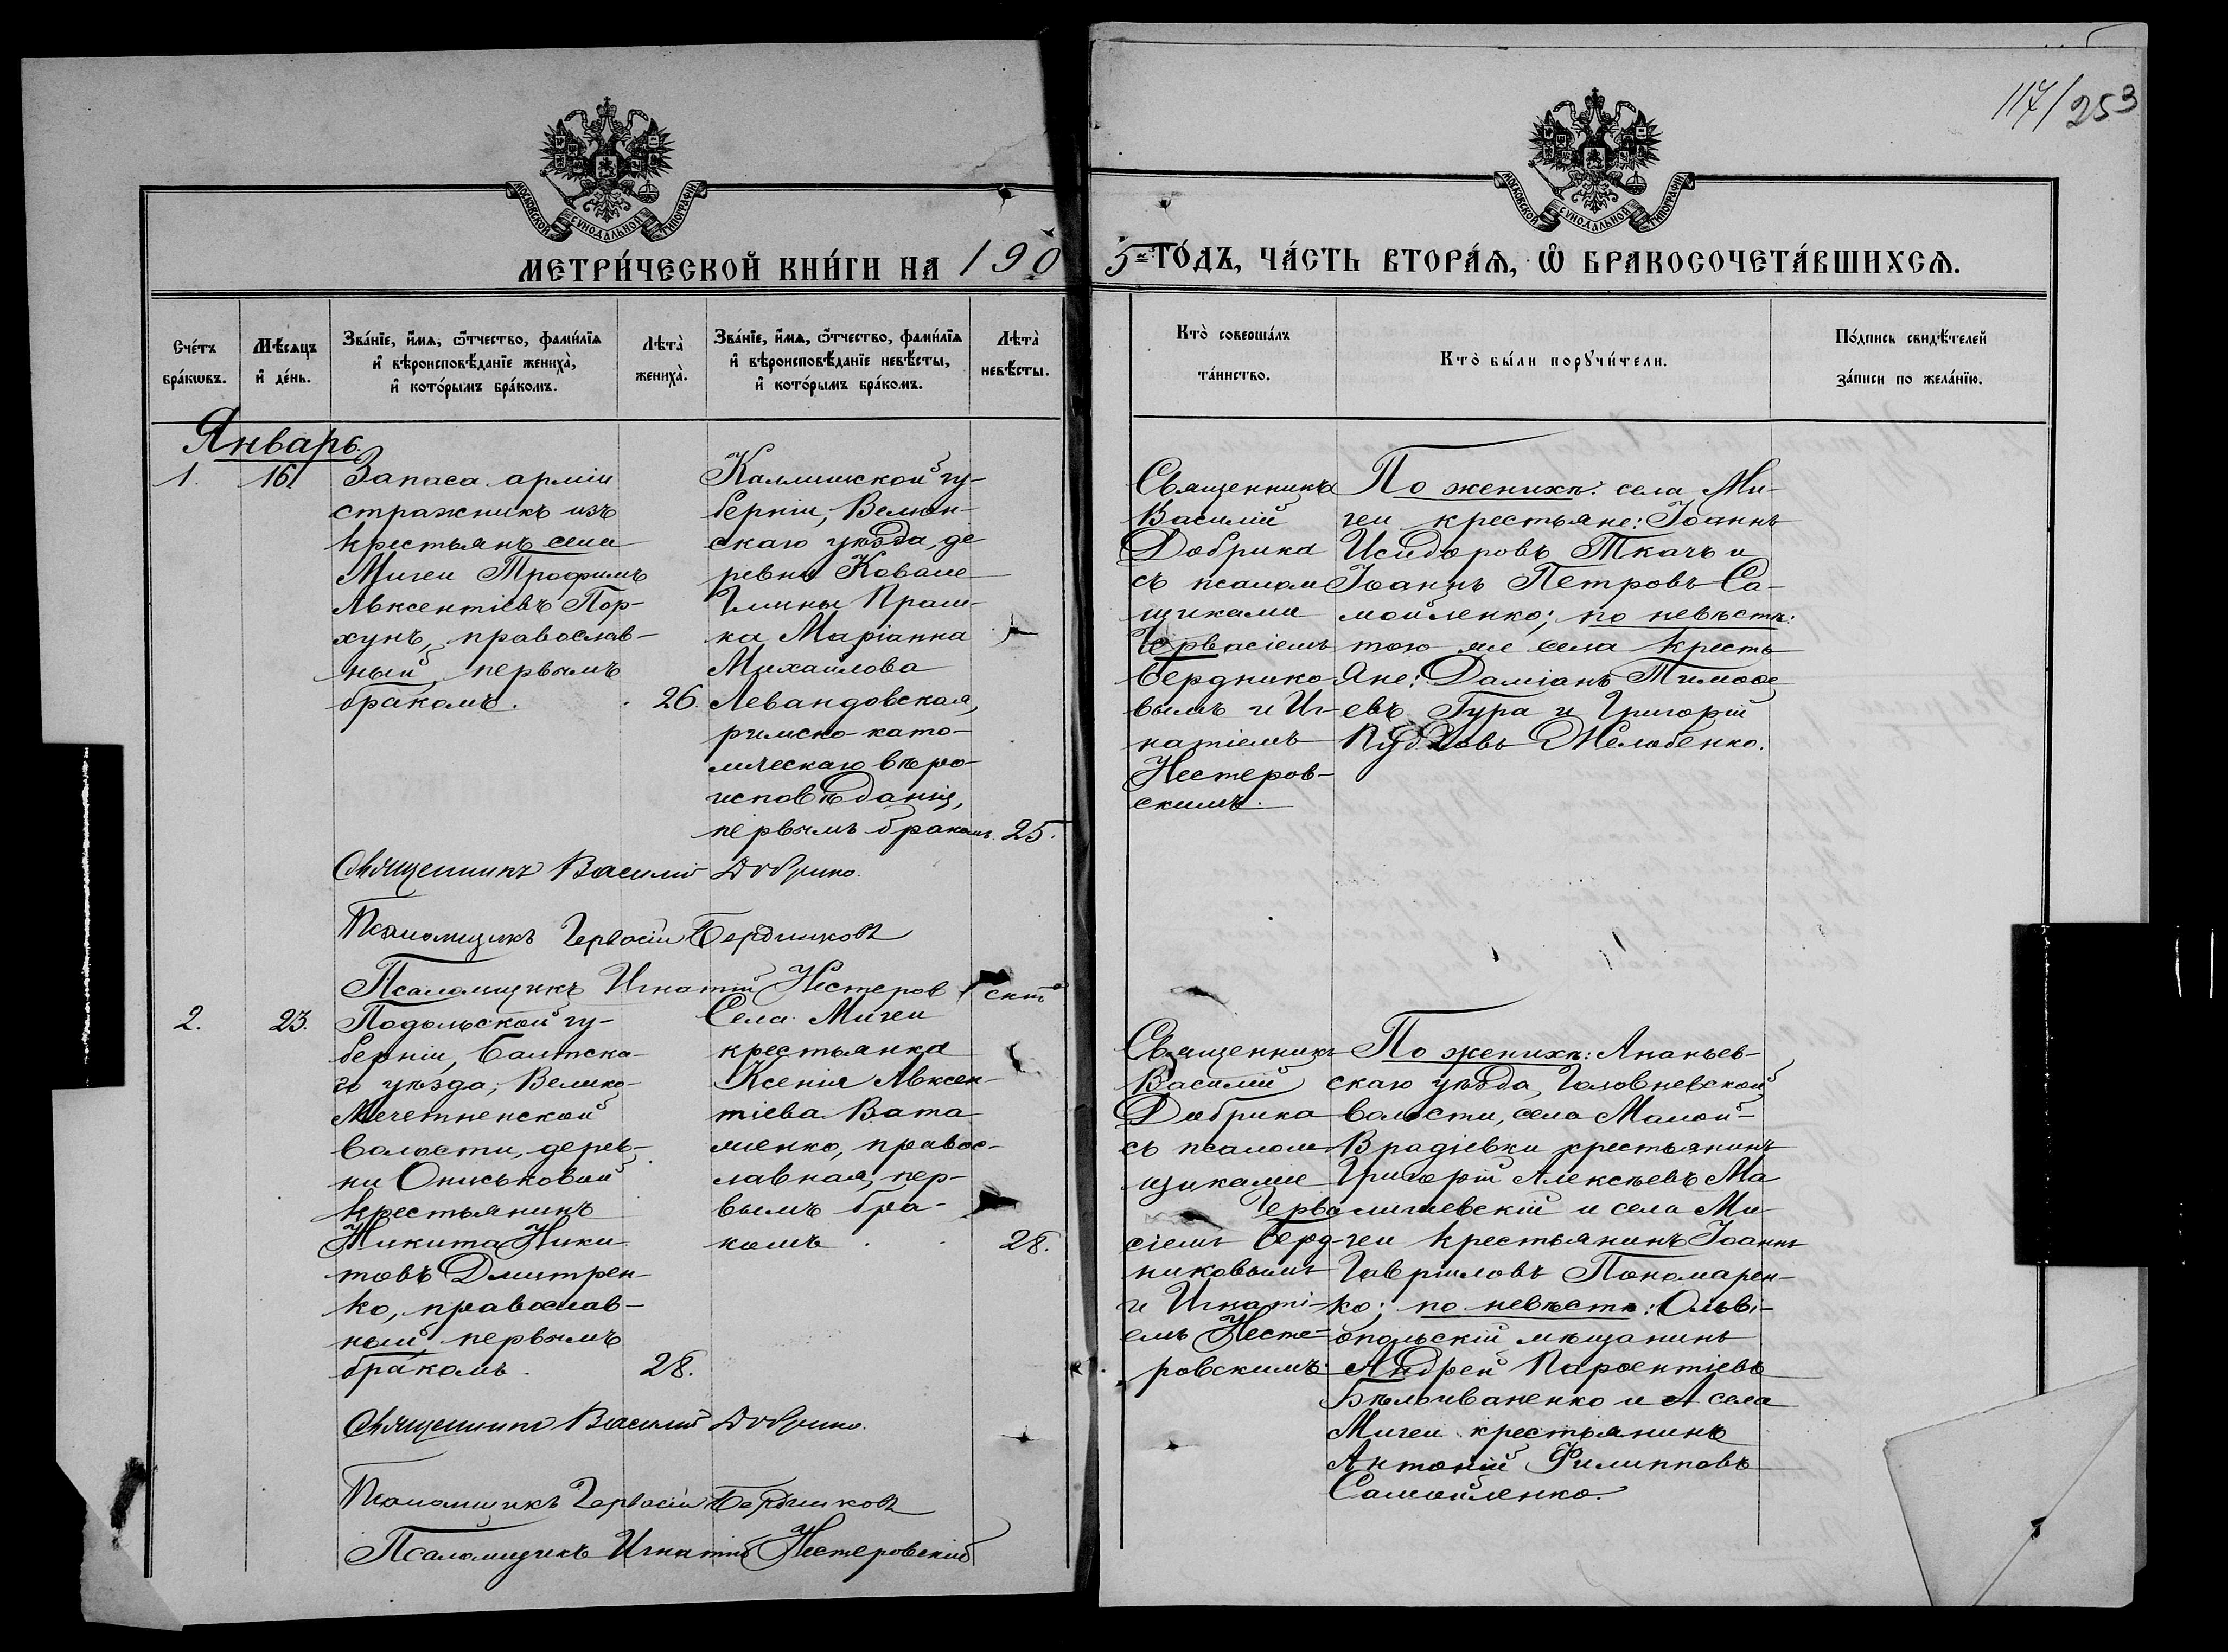 117/253
МОСКОВСКОЙ СУНОДАЛЬНОЙ ТИПОГРАФІИ
МОСКОВСКОЙ СУНОДАЛЬНОЙ ТИПОГРАФІИ
МЕТРИ́ЧЕСКОЙ КНИ́ГИ НА 190
5й ГО́ДЪ, ЧА́СТЬ ВТОРА́Ѧ, Ѡ҆ БРАКОСОЧЕТА́ВШИХСѦ.
Сче́тъ
бра́кѡвъ.
Мѣ́сѧцъ
и҆ де́нь.
Зва́нїе, и҆́мѧ, ѻ҆́тчество, фами́лїѧ
и҆ вѣроисповѣ́данїе жениха̀,
и҆ кото́рымъ бра́комъ.
Лѣта̀
жениха̀.
Зва́нїе, и҆́мѧ, ѻ҆́тчество, фами́лїѧ
и҆ вѣроисповѣ́данїе невѣ́сты,
и҆ кото́рымъ бра́комъ.
Лѣта̀
невѣ́сты.
Кто̀ соверша́лъ
та́инство.
Кто̀ бы́ли порꙋчи́тели.
По́дпись свидѣ́телей
за́писи по жела́нїю.
Январь.
1. 16.
Запаса арміи
стражникъ изъ
крестьянъ села
Мигеи Трофимъ
Авксентіевъ Пор-
хунъ, православ-
ный первымъ
бракомъ. 26.
Калишской гу-
берніи, Велюн-
скаго уѣзда, де
ревни Ковале
Гмины Праш-
ка Маріанна
Михайлова
Левандовская,
римско-като-
лическаго вѣро-
исповѣданія,
первымъ бракомъ. 25.
Священникъ
Василій
Добрика
съ псалом
щиками
Гервасіемъ
Берднико-
вымъ и Иг-
натіемъ
Нестеров-
скимъ.
По женихѣ: села Ми-
геи крестьяне: Іоаннъ
Исидоровъ Ткачъ и
Іоаннъ Петровъ Са-
мойленко; по невѣстѣ:
того же села кресть
яне: Даміанъ Тимофе
евъ Гура и Григорій
Желобенко.
Священникъ Василій Добрика.
Псаломщикъ Гервасій Бердниковъ
Псаломщикъ Игнатій Нестеровскій
2. 23.
Подольской гу-
берніи, Балтска-
го уѣзда, Велико-
Мечетненской
волости, дерев-
ни Ониськовой
крестьянинъ
Никита Ники
товъ Дмитрен-
ко, православ-
ный первымъ
бракомъ. 28.
Села Мигеи
крестьянка
Ксенія Авксен-
тіева Вата
менко, правос-
лавная, пер-
вымъ бра-
комъ 28.
Священникъ
Василій
Добрика
съ псалом
щиками
Герва
сіемъ Берд-
никовымъ
и Игнаті-
емъ Несте-
ровскимъ.
По женихѣ: Ананьев-
скаго уѣзда, Головневской
волости, села Малой-
Врадіевки крестьянинъ
Григорій Алексѣевъ Ма
лишевскій и села Ми
геи крестьянинъ Іоаннъ
Гавріиловъ Пономарен-
ко; по невѣстѣ: Ольві-
опольскій мѣщанинъ
Андрей Парфентіевъ
Бѣлоиваненко и села
Мигеи крестьянинъ
Антоній Филипповъ
Самойленко.
Священникъ Василій Добрика.
Псаломщикъ Гервасій Бердниковъ
Псаломщикъ Игнатій Нестеровскій